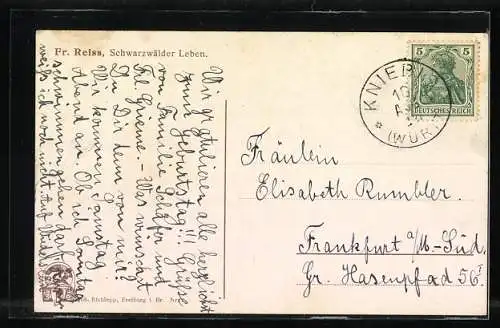 Fr. Reiss, Schwarzwälder Leben.
Wir gratulieren alle herzlichst
zum Geburtstag!!! Grüße
von Familie Schäfer und
Frl. Griene. - Was wünschst
Du Dir denn von mir?
Wir kommen Samstag
Abend an. Ob ich Sonntag
schwimmen gehen darf
weiß ich noch nicht. Auf Wied
5 5
DEUTSCHES REICH
KNIEBI
10
(WÜR
Fräulein
Elisabeth Rumbler.
Frankfurt a/M-Süd.
Gr. Hasenpfad 56I
Freiburg i. Br.